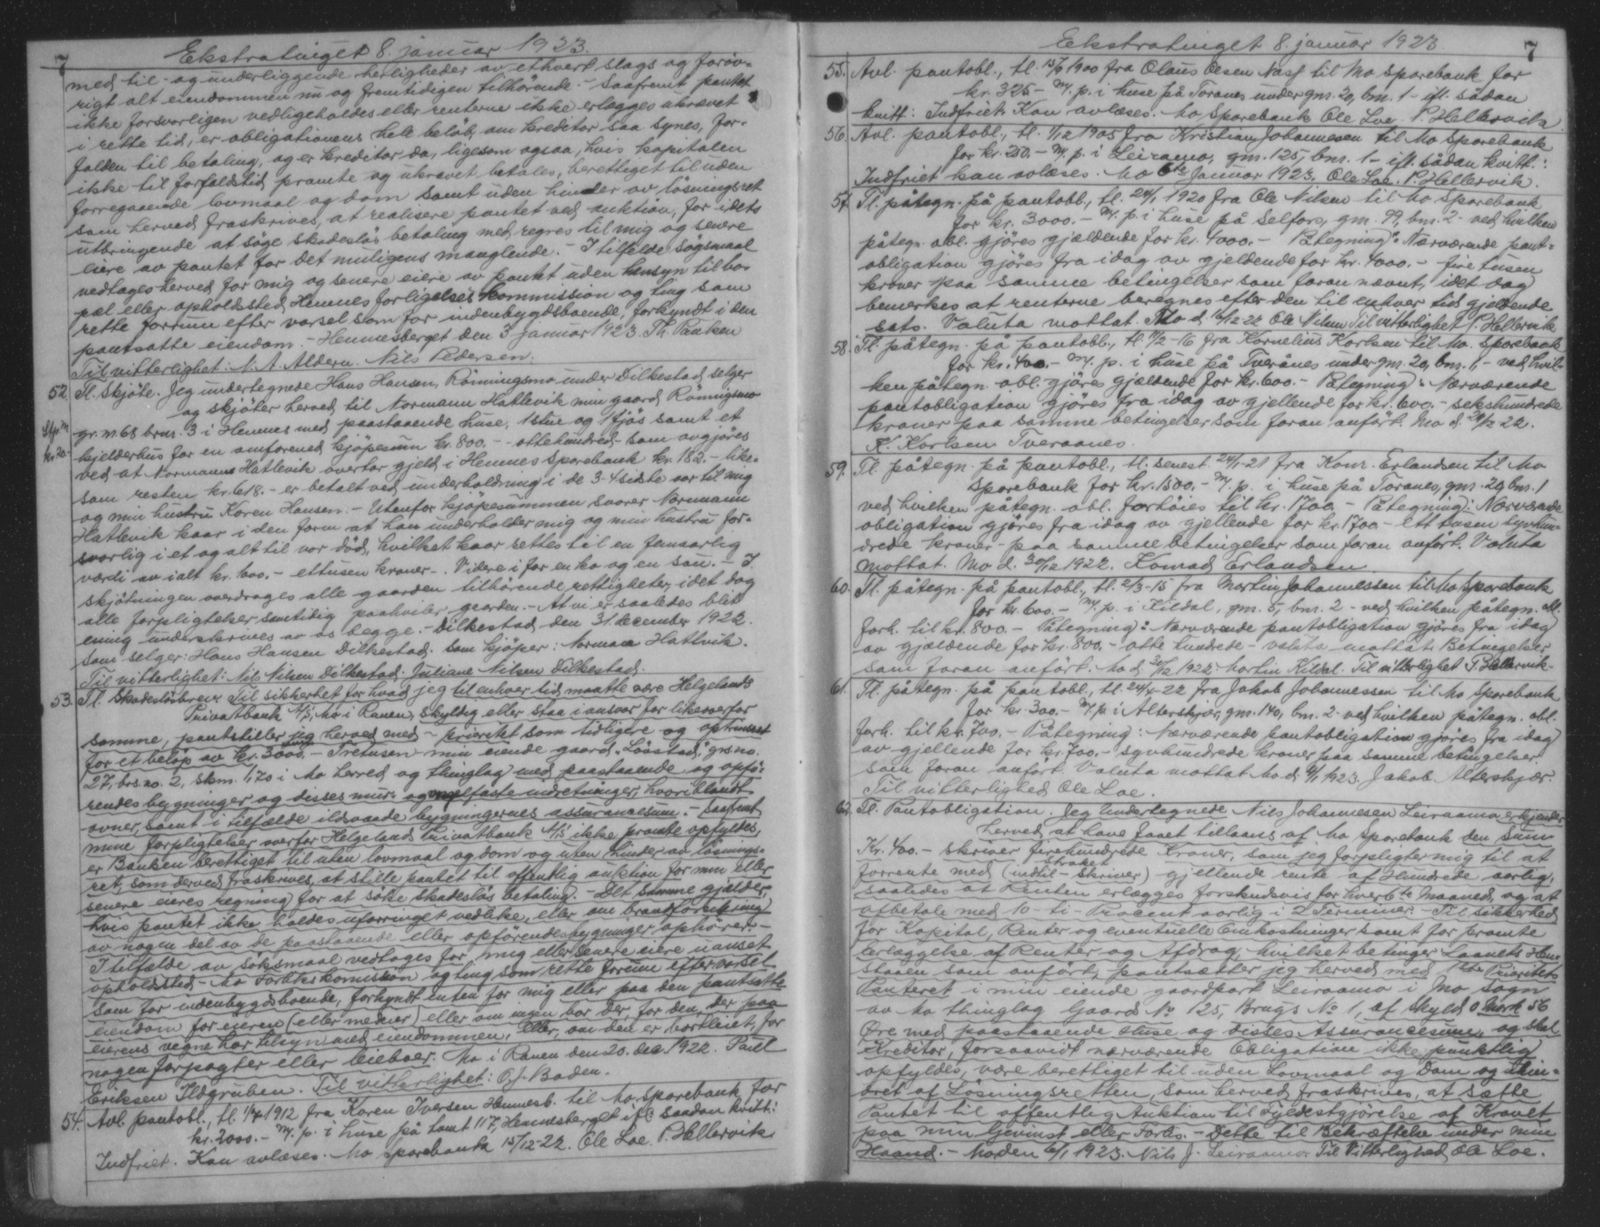 7 Ekstratinget 8. januar 1923.
med til- og underliggende herligheder av ethvert slags og forøv-
rigt alt eiendommen nu og fremtidigen tilhørende. - Saafremt pantet
ikke forsvarligen vedligeholdes eller renterne ikke erlægges ukrævet
i rette tid, er obligationens hele beløb, om kreditor saa synes, for-
falden til betaling, og er kreditor da, ligesom ogsaa, hvis kapitalen
ikke til forfaldstid promte og ukrævet betales, berettiget til uden
forregaaende lovmaal og dom samt uden hinder av løsningsret
som herved fraskrives, at realisere pantet ved auktion, for i dets
utbringende at søge skadesløs betaling med regres til mig og senere
eiere av pantet for det muligens manglende. - I tilfælde søgsmaal
vedtages herved for mig og senere eiere av pantet uden hensyn til bo-
pæl eller opholdssted Hemnes forligelseskommission og ting som
rette forum efter varsel som for indenbygdsboende, forkyndt i den
pantsatte eiendom. - Hemnesberget den 3 januar 1923. Th. Panken
Til vitterlighet: N. A. Aldern. Nils Pedersen.
52. Tl. Skjøte. Jeg undertegnede Hans Hansen, Rönningsmo under Dilkestad selger
og skjøter herved til Normann Hatlevik min gaard Rönnigsmo
gr. nr. 68 brnr. 3 i Hemnes med paastaaende huse, 1 stue og 1 fjøs samt et
kjelderhus for en omforened kjøpesum kr. 800.- ottehundred- som avgjøres
ved at Normann Hatlevik overtar gjeld i Hemnes Sparebank kr. 182.- like-
som resten kr. 618.- er betalt ved underholdning i de 3-4 sidste aar til mig
og min hustru Karen Hansen. - Utenfor kjøpesummen svarer Normann
Hatlevik kaar i den form at han underholder mig og min hustru for-
svarlig i et og alt til vor død, hvilket kaar settes til en femaarlig
værdi av ialt kr. 1000.- ettusen kroner-. Videre i for en ko og en sau. - I
skjøtningen overdrages alle gaarden tilhørende rettigheter, idet dog
alle forpligtelser samtidig paahviler gaarden. - At vi er saaledes blet
enig underskrives av os begge. - Dilkestad den 31 december 1922.
Som selger: Hans Hansen Dilkestad. Som kjøper: Norman Hatlevik.
Til vitterlighet: Nils Nilsen Dilkestad. Juliane Nilsen Dilkestad.
53. Tl. Skadesløsbrev. Til sikkerhet for hvad jeg til enhver tid maatte være Helgelands
Privatbank A/S, Mo i Ranen, skyldig eller staa i ansvar for likeoverfor
samme, pantstiller jeg herved med - prioritet som tidligere og opkunset
for et beløp av kr. 3000.- Tretusen - min eiende gaard "Lõvstad," grs.no.
27, brs.no. 2, skm. 1,70 i Mo herred og thinglag med paastaaende og opfø-
rendes bygninger og disses mur- og nagelfaste indretninger, hvoriblandt
ovner, samt i tilfælde ildsvaade bygningernes assurancesum. - Saafremt
mine forpligtelser overfor Helgelands Privatbank A/S ikke promte opfyldes,
er Banken berettiget til uten lovmaal og dom og uten hinder av løsnings-
ret, som derved fraskrives, at stille pantet til offentlig auktion for min eller
senere eieres regning for at söke skadesløs betaling. - Det samme gjælder,
hvis pantet ikke holdes uforringet vedlike, eller om brandforsikring
av nogen del av de paastaaende eller opførendes bygninger ophører. -
I tilfælde av søksmaal vedtages for mig eller senere eiere uanset
opholdssted - Mo Forlikskomission og ting som rette forum efter varsel
som for indenbygdsboende, forkyndt enten for mig eller paa den pantsatte
eiendom for eieren (eller medeier) eller om ingen bor der, for den, der paa
eierens vegne har tilsyn med eiendommen, eller, om den er bortleiet, for
nogen forpagter eller leieboer. Mo i Ranen den 20. dec. 1922. Paul
Eriksen Ildgruben. Til vitterlighet: O. J. Baden.
54. Avl. pantobl., tl. 1/4 1912 fra Karen Iversen Hemnesb. til Mo Sparebank for
kr. 2000.- m. p. i huse på tomt 117, Hemnesberget ifl. saadan kvitt:
Indfriet. Kan avlæses. Mo Sparebank 15/12-22. Ole Loe. P. Hellervik
Ekstratinget 8. januar 1923 7
55. Avl. pantobl., tl. 15/9 1900 fra Claus Olsen Nasf til Mo Sparebank for
kr. 325.- m. p. i huse på Toranes under gnr. 20, bnr. 1 - ifl. sådan
kvitt: Indfriet. Kan avlæses. Mo Sparebank Ole Loe. P. Hellervik
56. Avl. pantobl., tl. 1/12 1905 fra Kristian Johannesen til Mo Sparebank
for kr. 250.- m. p. i Leiramo, gnr. 125, bnr. 1 - ifl. sådan kvitt.:
Indfriet kan avlæses. Mo 6te Januar 1923, Ole Loe. P. Hellervik.
57. Tl. påtegn. på pantobl., tl. 24/1 1920 fra Ole Nilsen til Mo Sparebank
for kr. 3000.- m. p. i huse på Selfors, gnr. 99, bnr. 2 - ved hvilken
påtegn. obl. gjöres gjældende for kr. 4000.- Påtegning: Nærværende pant-
obligation gjöres fra idag av gjeldende for kr. 4000.- fire tusen
kroner paa samme betingelser som foran nævnt, idet dog
bemerkes at renterne beregnes efter den til enhver tid gjeldende
sats. Valuta mottat Mo d. 16/12 22 Ole Nilsen Til vitterlighet P. Hellervik
58. Tl. påtegn. på pantobl., tl. 11/2-16 fra Kornelius Karlsen til Mo Sparebank
for kr. 400.- m. p. i huse på Tverånes under gnr. 20, bnr. 1, - ved hvil-
ken påtegn. obl. gjöres gjældende for kr. 600.- Påtegning: Nærværende
pantobligation gjöres fra idag av gjellende for kr. 600.- sekshundrede
kroner paa samme betingelser som foran anført. Mo d. 20/12 22.
K. Karlsen Tveraanes.
59. Tl. påtegn. på pantobl., tl. senest 24/1-21 fra Konr. Erlandsen til Mo
Sparebank for kr. 1500.- m. p. i huse på Toranes, gnr. 20, bnr. 1
ved hvilken påtegn. obl. forhöies til kr. 1700.- Påtegning: Nærværende
obligation gjöres fra idag av gjellende for kr. 1700.- ett tusen syvhun-
drede kroner - paa samme betingelser som foran anført. Valuta
mottat. Mo d. 30/12 1922. Konrad Erlandsen
60. Tl. påtegn. på pantobl., tl. 2/3-15 fra Martin Johannessen til Mo Sparebank
for kr. 600.- m. p. i Kildal, gnr. 5, bnr. 2 - ved hvilken påtegn. obl.
forh. til kr. 800.- Påtegning: Nærværende pantobligation gjöres fra idag
av gjældende for kr. 800.- otte hundrede - valuta mottat. Betingelser
som foran anført. Mo d. 30/12 1922. Martin Kildal. Til vitterlighet P. Hellervik.
61. Tl. påtegn. på pantobl., tl. 24/4-22 fra Jakob Johannessen til Mo Sparebank
for kr. 300.- m. p. i Alterskjær, gnr. 140, bnr. 2 - ved hvilken påtegn. obl.
forh. til kr. 700.- Påtegning: Nærværende pantobligation gjöres fra idag
av gjellende for kr. 700.- syvhundrede kroner paa samme betingelser
som foran anført. Valuta mottat Mo d. 4/1 1923. Jakob Alterskjær.
Til vitterlighed Ole Loe.
62. Tl. Pantobligation. Jeg Undertegnede Nils Johannesen Leiraamo erkjender
herved at have faaet tillaans af Mo Sparebank den Sum
Kr. 400.- skriver firehundrede Kroner, som jeg forpligter mig til at
forrente med (indtil- straket skriver) gjellende rente af Hundrede aarlig,
saaledes at Renten erlægges forskudsvis for hver 6te Maaned, og at
afbetale med 10 - ti - Procent aarlig i 2 Terminer. - Til sikkerhed
for Kapital, Renter og eventuelle Omkostninger samt for promte
erlæggelse af Renter og Afdrag, hvilket betinger Laanets Hen-
staaen som anført, pantsætter jeg herved med 1ste Prioritets
Panteret i min eiende gaardpart Leiraamo i Mo Sogn
av Mo thinglag Gaard No 125, Brugs No 1, af Skyld 0 Mark 56
Øre med paastaaende Huse og disses Assurancesum, og skal
Kreditor, forsaavidt nærværende Obligation ikke punktlig
opfyldes, være berettiget til uden Lovmaal og Dom og Hin-
dret af Løsningsretten, som herved fraskrives, at sætte
Pantet til offentlig Auktion til Fyldestgjørelse af Kravet
paa min Gevinst eller Forlis. - Dette til Bekræftelse under min
Haand. - Mo den 6/1 1923. Nils J. Leiraamo Til Vitterlighed Ole Loe.